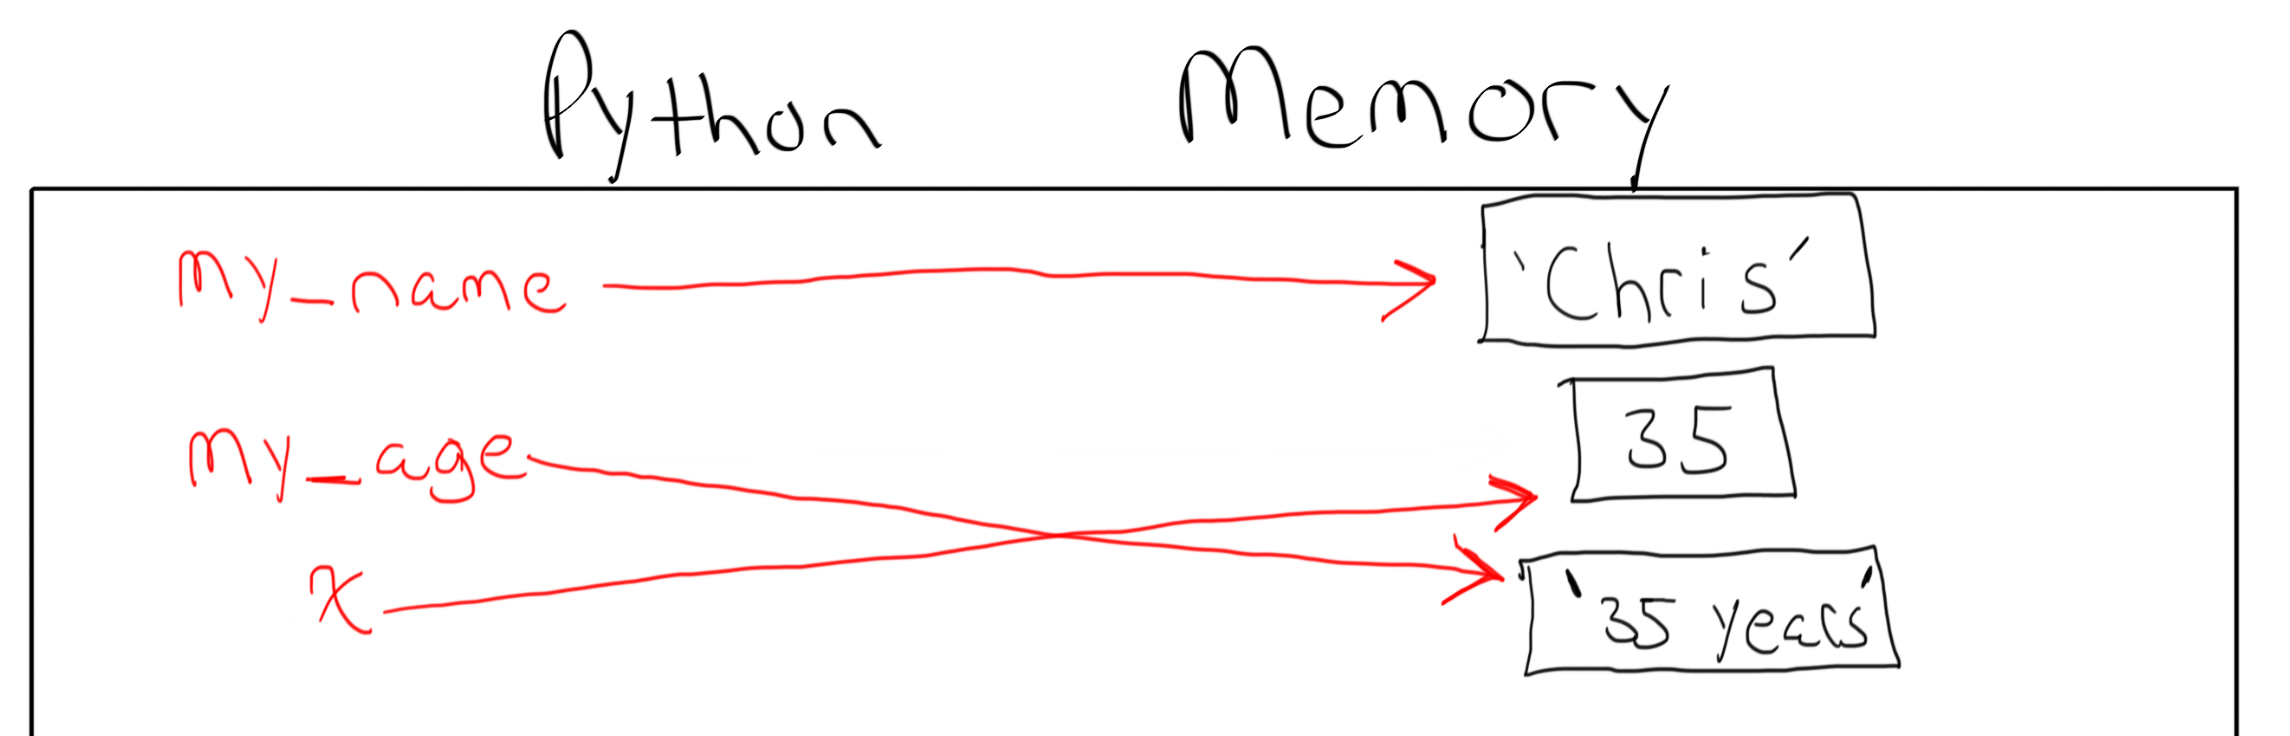 Python Memory
my_name 'Chris'
my_age 35
x '35 years'